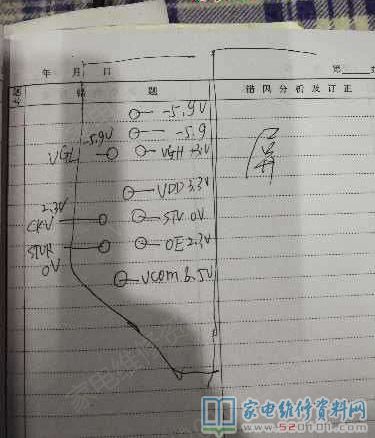 年 月 日
第
题号
题
错因分析及订正
-5.9V
-5.9V
-5.9
VGL
VGH
屏
VDD 3.3V
2.3V
CKV
STV 0V
STVR
OE 2.3V
0V
Vcom
家电维修资料网
www.520101.com